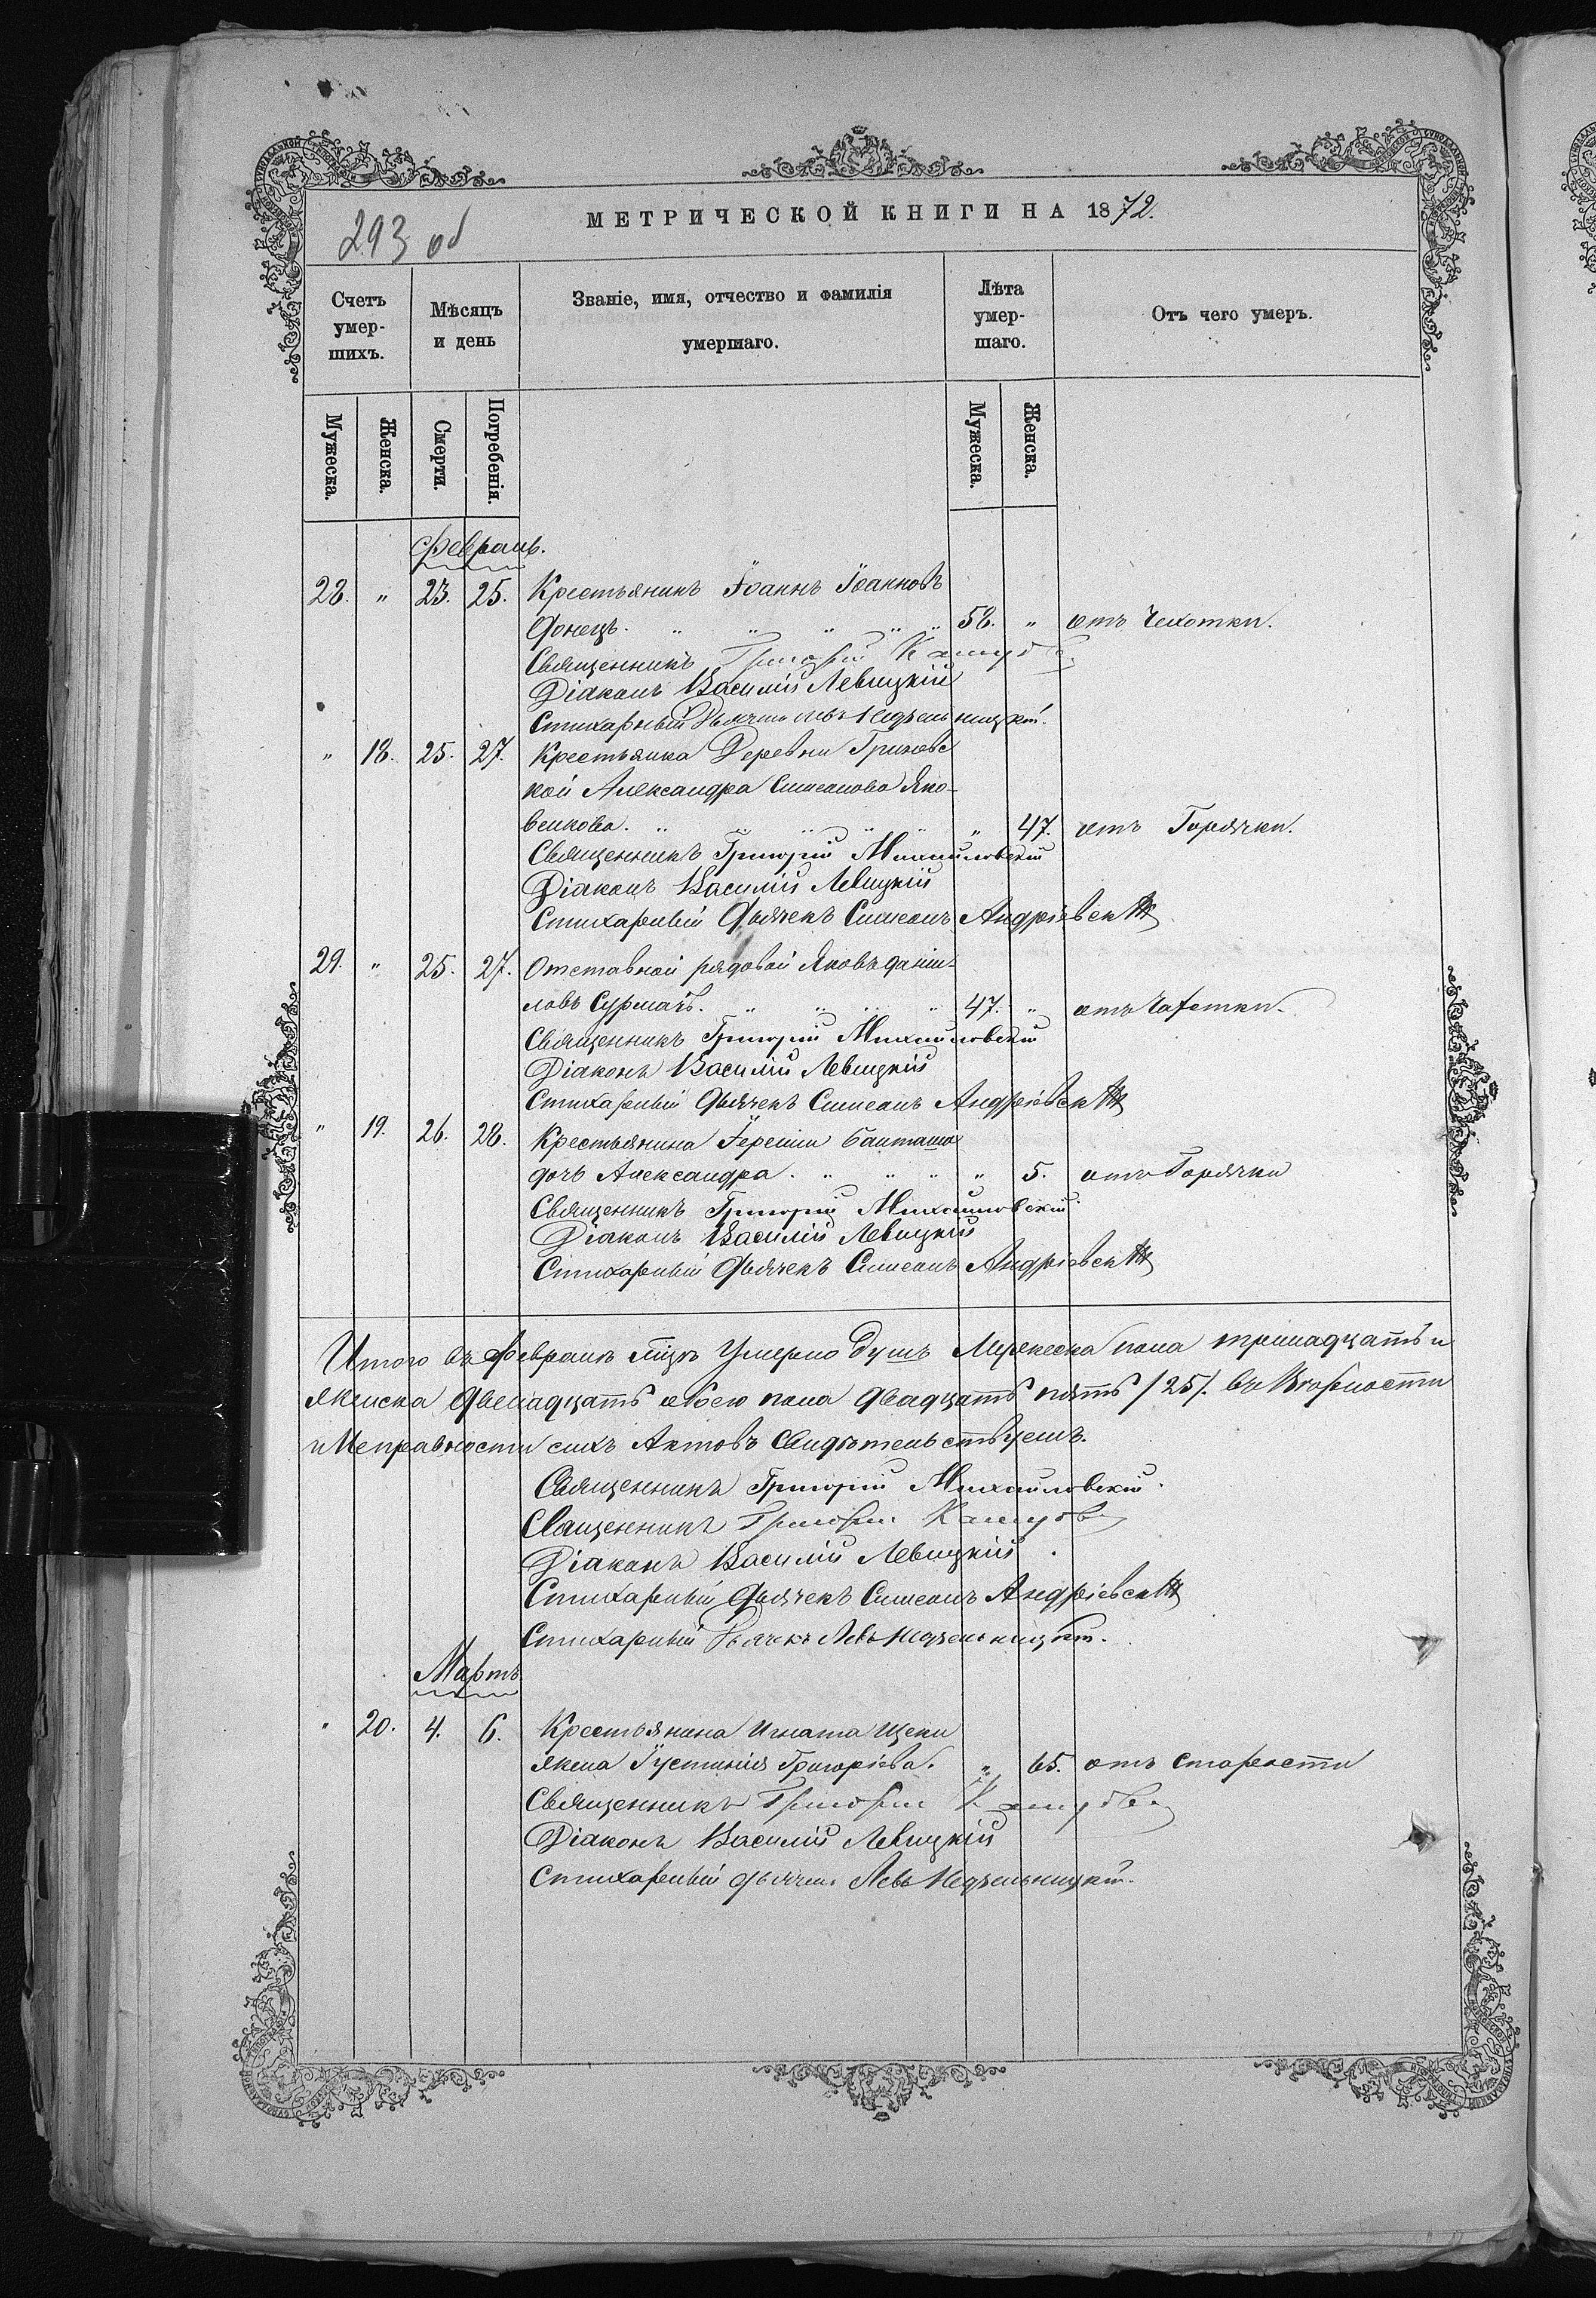 МЕТРИЧЕСКОЙ КНИГИ НА 1872.
293 об
Счетъ умер-шихъ.
Мѣсяцъ и день
Званіе, имя, отчество и фамилія умершаго.
Лѣта умер-шаго.
Отъ чего умеръ.
Мужеска.
Женска.
Смерти.
Погребенія.
Мужеска.
Женска.
Февраль.
28. " 23. 25. Крестьянинъ Іоаннъ Іоанновъ
Донецъ. " " " " " 58. " отъ Чехотки.
Священникъ Григорій
Діаконъ Василій Левицкій
Стихарный Дьячекъ Левъ Недзельницкій.
" 18. 25. 27. Крестьянка Деревни Гриновс
кой Александра Симеонова Яко-
венкова. " " " " " " 47. отъ Горячки.
Священникъ Григорій Михайловскій
Діаконъ Василій Левицкій
Стихарный Дьячекъ Симеонъ Андріевскій
29. " 25. 27. Отставной рядовой Яковъ Даніи-
ловъ Сурмачъ. " " " " 47. " отъ Чахотки.
Священникъ Григорій Михайловскій
Діаконъ Василій Левицкій
Стихарный Дьячекъ Симеонъ Андріевскій
" 19. 26. 28. Крестьянина Іереміи
дочь Александра. " " " " " 5. отъ Горячки
Священникъ Григорій Михайловскій
Діаконъ Василій Левицкій
Стихарный Дьячекъ Симеонъ Андріевскій
Итого въ Февралѣ мцѣ Умерло душъ Мужеска пола тринадцать и
женска двенадцать обоего пола двадцать пять /25/. въ Вѣрности
и Неправности сихъ Актовъ свидѣтельствуемъ.
Священникъ Григорій Михайловскій.
Священникъ Григорій
Діаконъ Василій Левицкій.
Стихарный Дьячекъ Симеонъ Андріевскій
Стихарный Дьячекъ Левъ Недзельницкій.
Мартъ
" 20. 4. 6. Крестьянина Игната Щеки
жена Іустинія Григоріева. " 65. отъ старости
Священникъ Григорій
Діаконъ Василій Левицкій
Стихарный дьячекъ Левъ Недзельницкій.